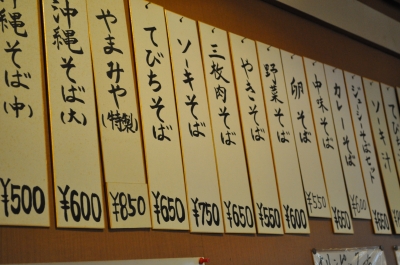 沖縄そば(中)
¥500
沖縄そば(大)
¥600
やまみや(特製)
¥850
てびちそば
¥650
ソーキそば
¥750
三枚肉そば
¥650
やきそば
¥550
野菜そば
¥600
卵そば
¥550
中味そば
¥650
カレーそば
¥600
ジューシーそばセット
¥650
ソーキ汁